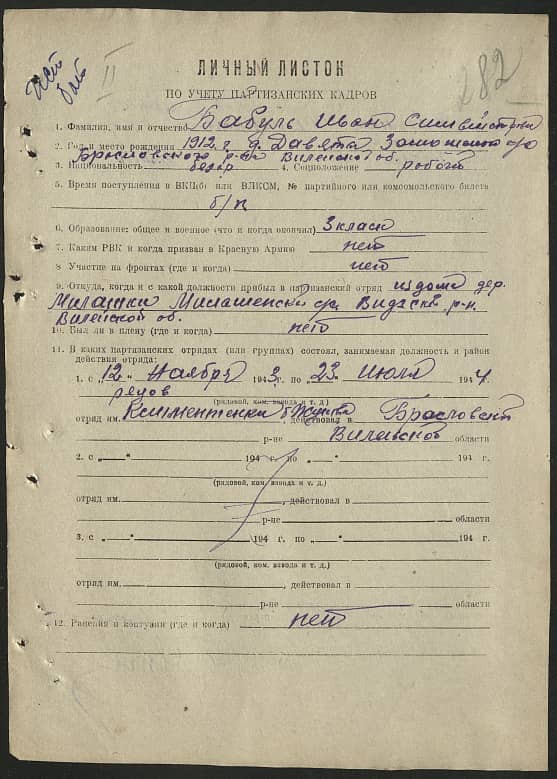 II
282
ЛИЧНЫЙ ЛИСТОК
ПО УЧЕТУ ПАРТИЗАНСКИХ КАДРОВ
1. Фамилия, имя и отчество Бабуль Иван
2. Год и место рождения 1912 г. д. Давята
Браславского р-на Вилейской об.
3. Национальность белар 4. Соцположение рабочий
5. Время поступления в ВКП(б) или ВЛКСМ, № партийного или комсомольского билета
б/п
6. Образование: общее и военное (что и когда окончил) 3 класс
7. Каким РВК и когда призван в Красную Армию нет
8 Участие на фронтах (где и когда) нет
9. Откуда, когда и с какой должности прибыл в партизанский отряд из дома дер.
Милашки р-н.
Вилейской об.
10. Был ли в плену (где и когда) нет
11. В каких партизанских отрядах (или группах) состоял, занимаемая должность и район
действия отряда:
1. с „12„ Ноября 1943 г. по „23„ Июля 1944 г.
рядов
(рядовой, ком. взвода и т. д.)
отряд им. действовал в Браславский
р-не Вилейской области
2. с „ „ 194 г. по „ „ 194 г.
(рядовой, ком. взвода и т. д.)
отряд им. , действовал в
р-не области
3. с „ „ 194 г. по „ „ 194 г.
(рядовой, ком. взвода и т. д.)
отряд им. , действовал в
р-не области
12. Ранения и контузии (где и когда) нет